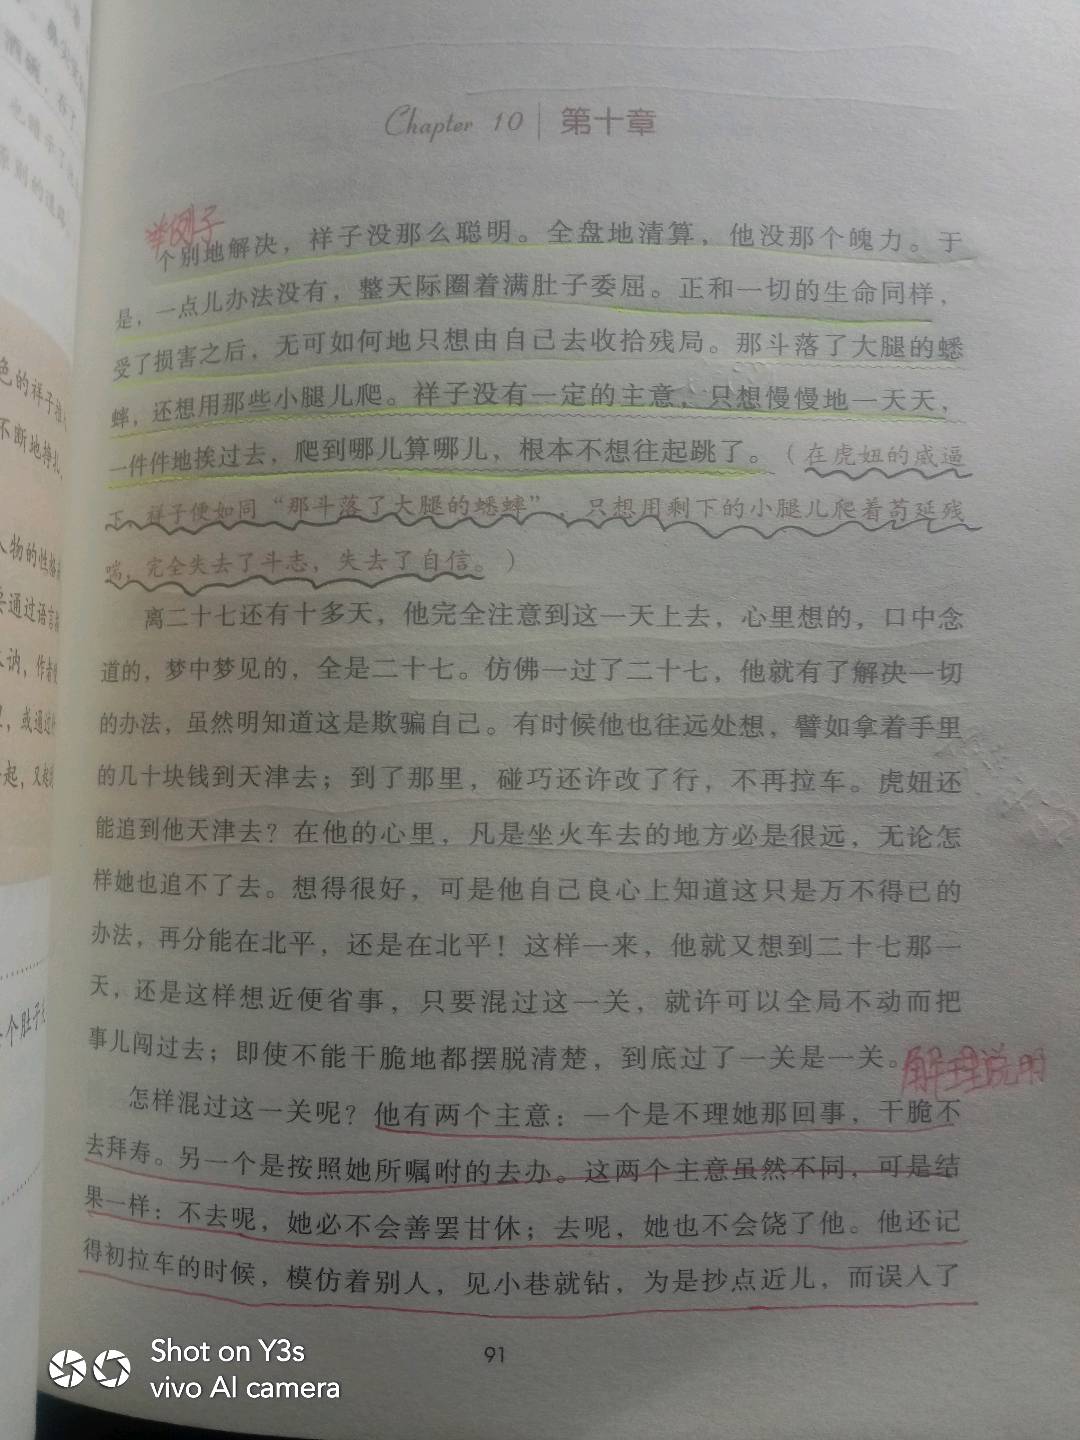 Chapter 10 | 第十章
举例子
个别地解决，祥子没那么聪明。全盘地清算，他没那个魄力。于
是，一点儿办法没有，整天际圈着满肚子委屈。正和一切的生命同样，
受了损害之后，无可如何地只想由自己去收拾残局。那斗落了大腿的蟋
蟀，还想用那些小腿儿爬。祥子没有一定的主意，只想慢慢地一天天，
一件件地挨过去，爬到哪儿算哪儿，根本不想往起跳了。（在虎妞的威逼
下，祥子便如同“那斗落了大腿的蟋蟀”，只想用剩下的小腿儿爬着苟延残
喘，完全失去了斗志，失去了自信。）
离二十七还有十多天，他完全注意到这一天上去，心里想的，口中念
道的，梦中梦见的，全是二十七。仿佛一过了二十七，他就有了解决一切
的办法，虽然明知道这是欺骗自己。有时候他也往远处想，譬如拿着手里
的几十块钱到天津去；到了那里，碰巧还许改了行，不再拉车。虎妞还
能追到他天津去？在他的心里，凡是坐火车去的地方必是很远，无论怎
样她也追不了去。想得很好，可是他自己良心上知道这只是万不得已的
办法，再分能在北平，还是在北平！这样一来，他就又想到二十七那一
天，还是这样想近便省事，只要混过这一关，就许可以全局不动而把
事儿闯过去；即使不能干脆地都摆脱清楚，到底过了一关是一关。
解理说明
怎样混过这一关呢？他有两个主意：一个是不理她那回事，干脆不
去拜寿。另一个是按照她所嘱咐的去办。这两个主意虽然不同，可是结
果一样：不去呢，她必不会善罢甘休；去呢，她也不会饶了他。他还记
得初拉车的时候，模仿着别人，见小巷就钻，为是抄点近儿，而误入了
91
Shot on Y3s
vivo AI camera